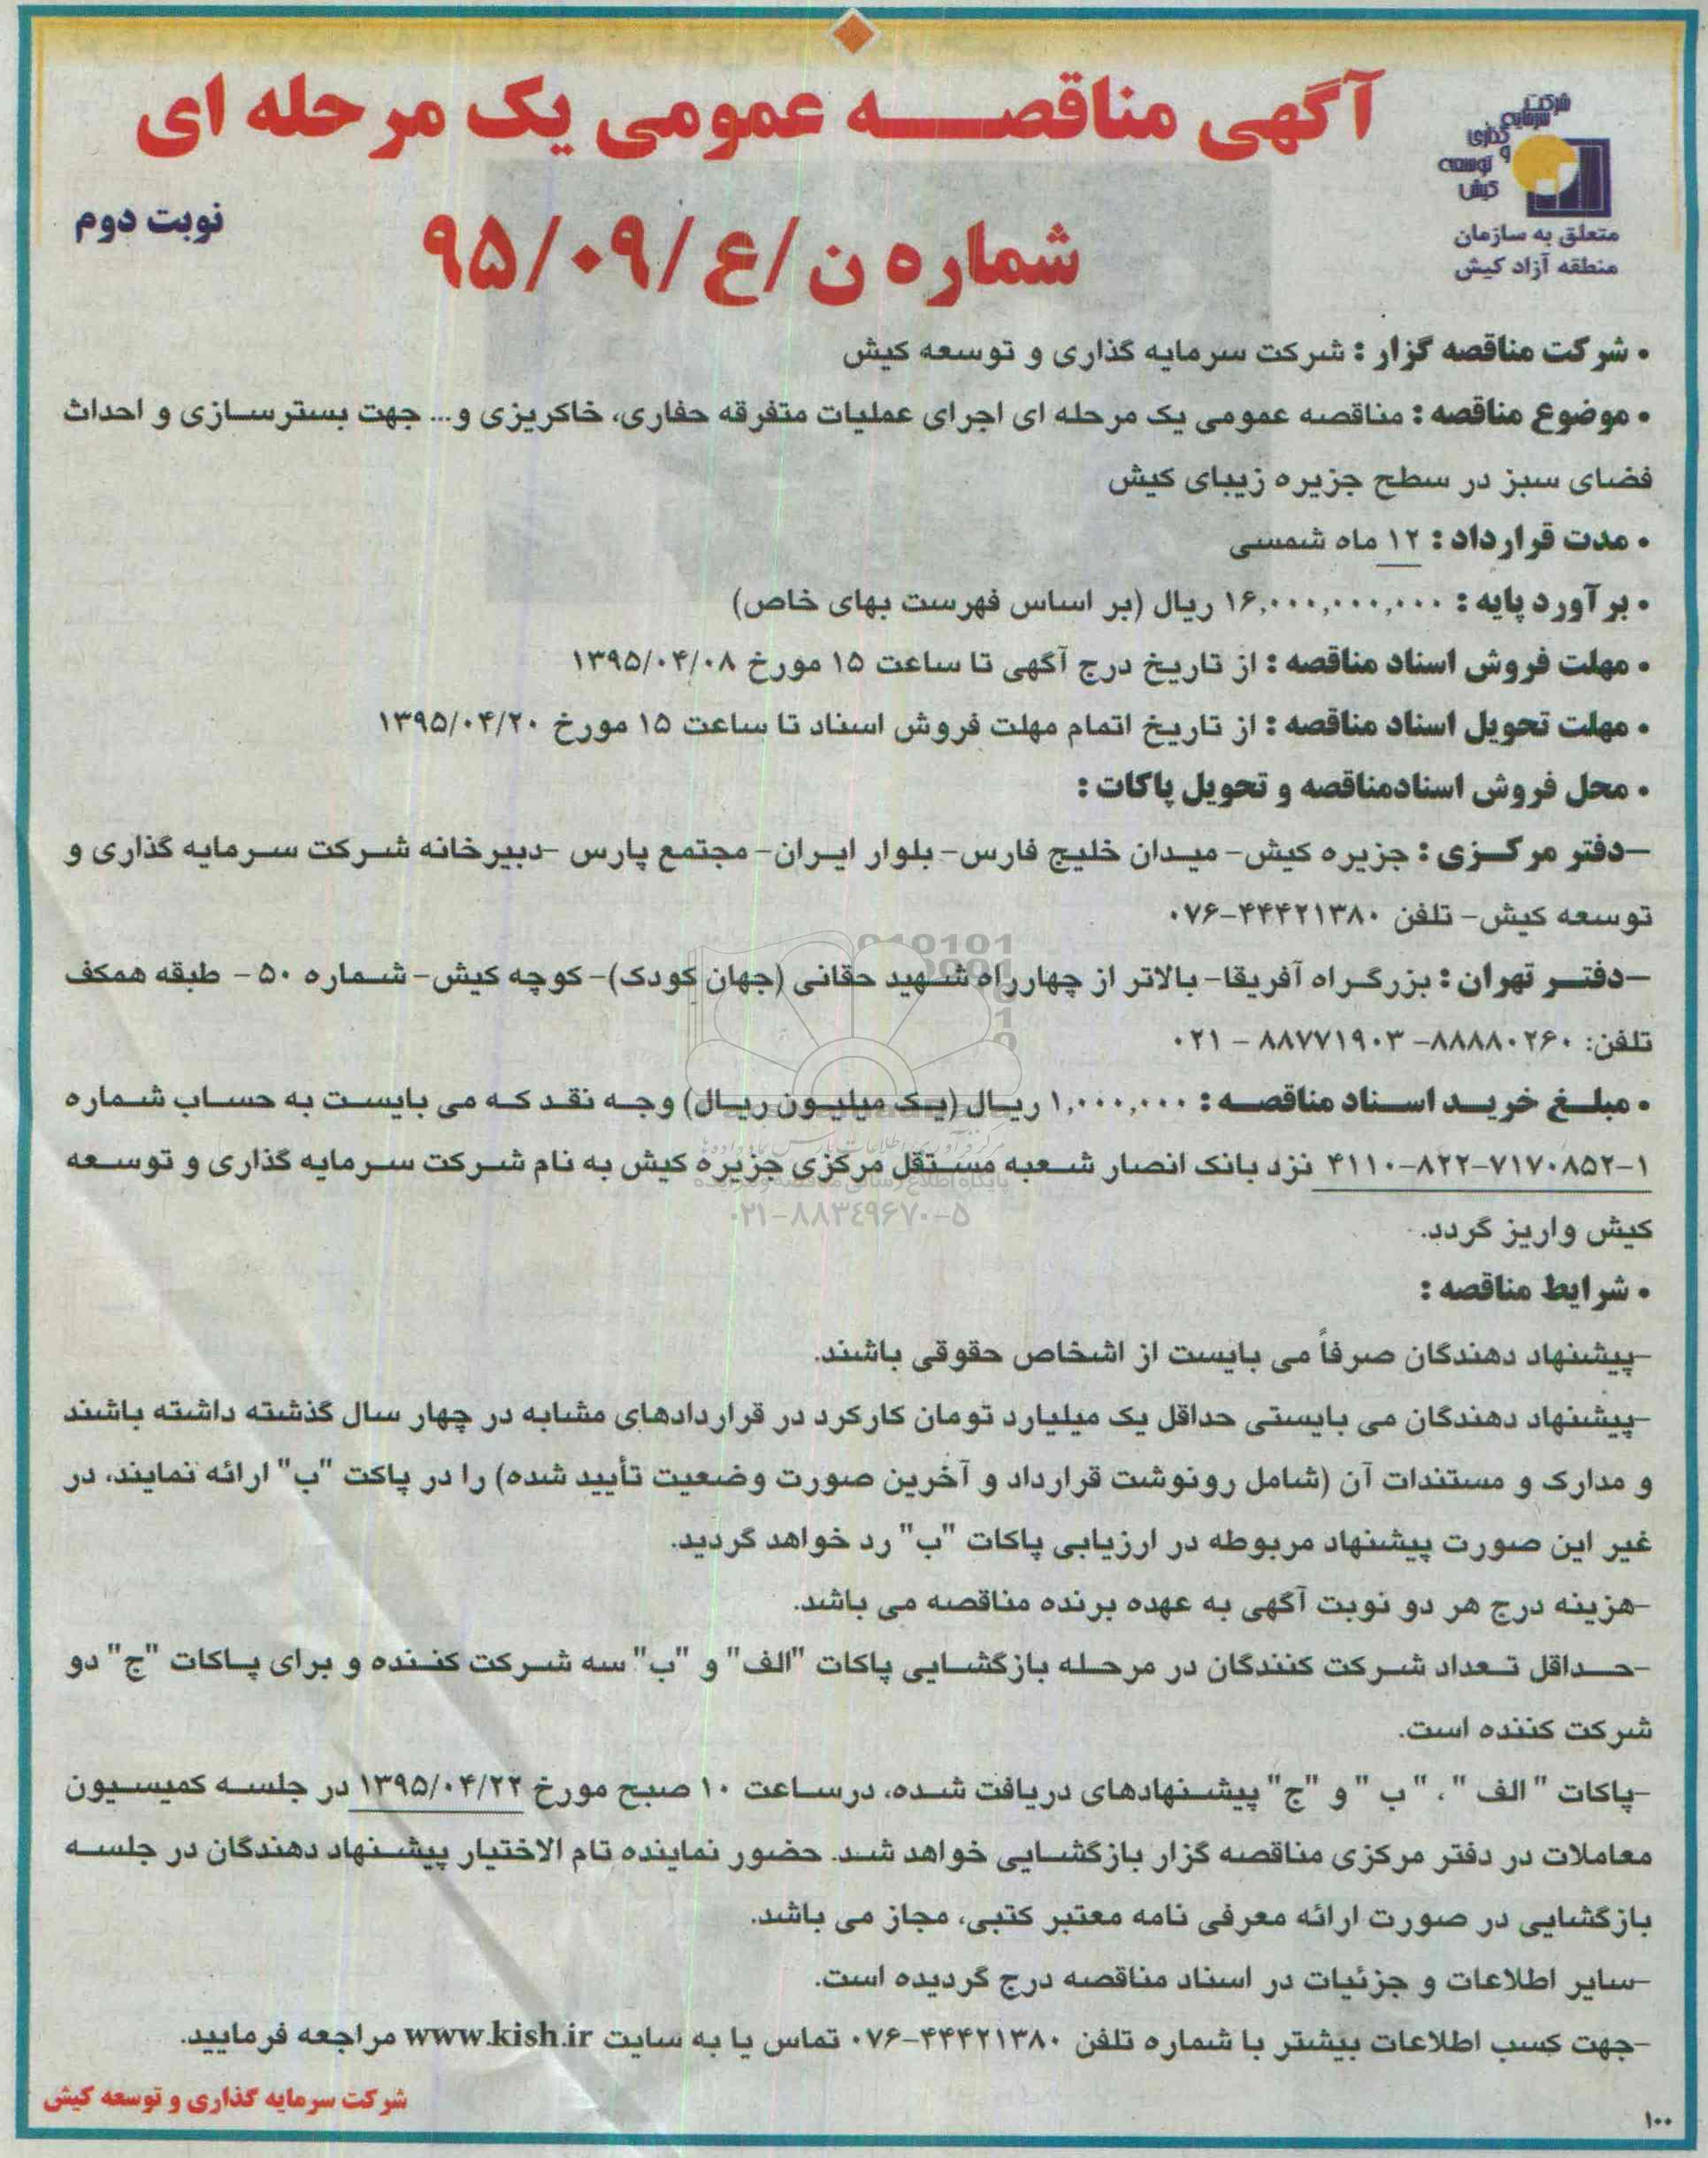 آگهی مناقصه عمومی یک مرحله ای
شرکت
سرمایه
گذاری
و توسعه
کیش
متعلق به سازمان
منطقه آزاد کیش
شماره ن/ع/۹۵/۰۹
نوبت دوم
• شرکت مناقصه گزار : شرکت سرمایه گذاری و توسعه کیش
• موضوع مناقصه : مناقصه عمومی یک مرحله ای اجرای عملیات متفرقه حفاری، خاکریزی و... جهت بسترسازی و احداث
فضای سبز در سطح جزیره زیبای کیش
• مدت قرارداد : ۱۲ ماه شمسی
• برآورد پایه : ۱۶,۰۰۰,۰۰۰,۰۰۰ ریال (بر اساس فهرست بهای خاص)
• مهلت فروش اسناد مناقصه : از تاریخ درج آگهی تا ساعت ۱۵ مورخ ۱۳۹۵/۰۴/۰۸
• مهلت تحویل اسناد مناقصه : از تاریخ اتمام مهلت فروش اسناد تا ساعت ۱۵ مورخ ۱۳۹۵/۰۴/۲۰
• محل فروش اسنادمناقصه و تحویل پاکات :
-دفتر مرکزی : جزیره کیش- میدان خلیج فارس- بلوار ایران- مجتمع پارس -دبیرخانه شرکت سرمایه گذاری و
توسعه کیش- تلفن ۴۴۴۲۱۳۸۰-۰۷۶
-دفتر تهران : بزرگراه آفریقا- بالاتر از چهارراه شهید حقانی (جهان کودک)- کوچه کیش- شماره ۵۰ - طبقه همکف
تلفن: ۸۸۸۸۰۲۶۰- ۸۸۷۷۱۹۰۳ - ۰۲۱
• مبلغ خرید اسناد مناقصه : ۱,۰۰۰,۰۰۰ ریال (یک میلیون ریال) وجه نقد که می بایست به حساب شماره
۴۱۱۰-۸۲۲-۷۱۷۰۸۵۲-۱ نزد بانک انصار شعبه مستقل مرکزی جزیره کیش به نام شرکت سرمایه گذاری و توسعه
۰۲۱-۸۸۳۴۹۶۷۰-۵
کیش واریز گردد.
• شرایط مناقصه :
-پیشنهاد دهندگان صرفاً می بایست از اشخاص حقوقی باشند.
-پیشنهاد دهندگان می بایستی حداقل یک میلیارد تومان کارکرد در قراردادهای مشابه در چهار سال گذشته داشته باشند
و مدارک و مستندات آن (شامل رونوشت قرارداد و آخرین صورت وضعیت تأیید شده) را در پاکت "ب" ارائه نمایند، در
غیر این صورت پیشنهاد مربوطه در ارزیابی پاکات "ب" رد خواهد گردید.
-هزینه درج هر دو نوبت آگهی به عهده برنده مناقصه می باشد.
-حداقل تعداد شرکت کنندگان در مرحله بازگشایی پاکات "الف" و "ب" سه شرکت کننده و برای پاکات "ج" دو
شرکت کننده است.
-پاکات " الف "، " ب " و "ج" پیشنهادهای دریافت شده، درساعت ۱۰ صبح مورخ ۱۳۹۵/۰۴/۲۲ در جلسه کمیسیون
معاملات در دفتر مرکزی مناقصه گزار بازگشایی خواهد شد. حضور نماینده تام الاختیار پیشنهاد دهندگان در جلسه
بازگشایی در صورت ارائه معرفی نامه معتبر کتبی، مجاز می باشد.
-سایر اطلاعات و جزئیات در اسناد مناقصه درج گردیده است.
-جهت کسب اطلاعات بیشتر با شماره تلفن ۴۴۴۲۱۳۸۰-۰۷۶ تماس یا به سایت www.kish.ir مراجعه فرمایید.
شرکت سرمایه گذاری و توسعه کیش
۱۰۰